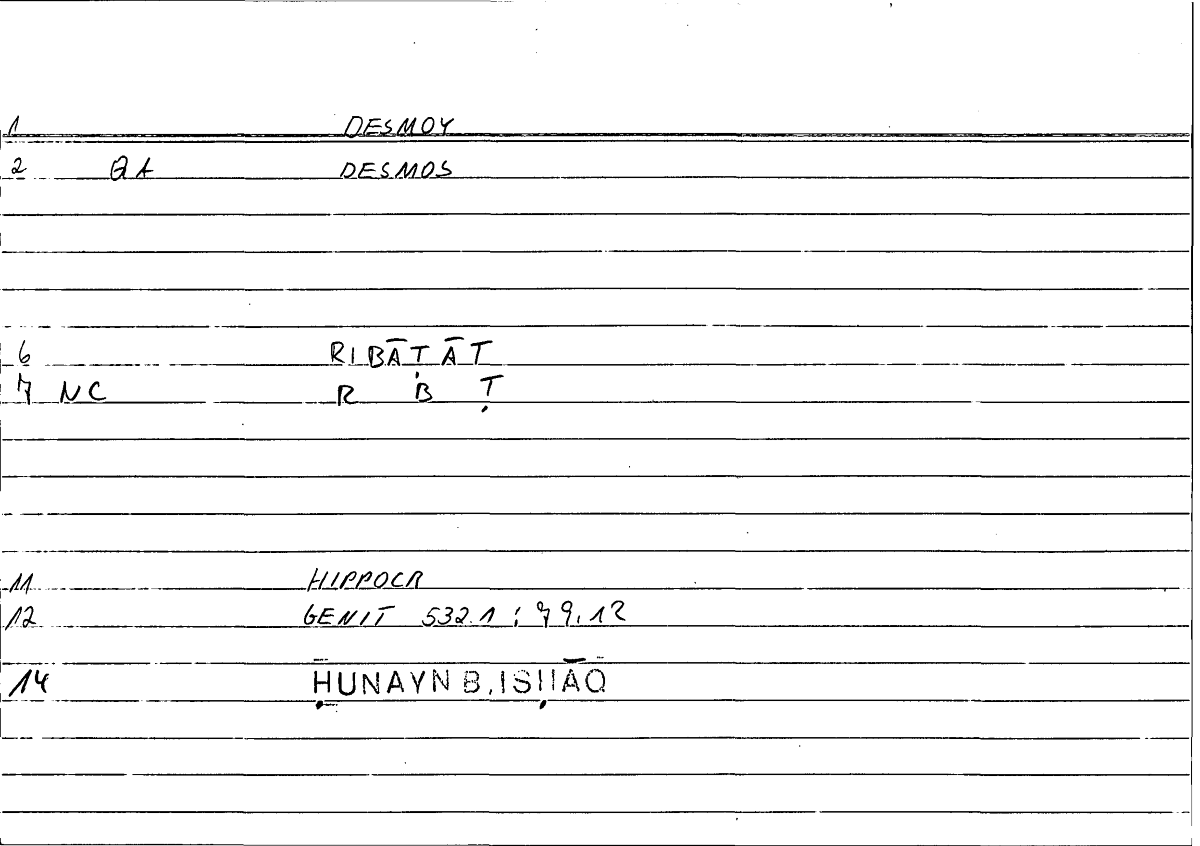 1 DESMOY
2 QA DESMOS
6 RIBĀṬĀT
7 NC R B Ṭ
11 HIPPOCR
12 GENIT 532.1 ; 79.12
14 ḤUNAYN B.ISḤĀQ